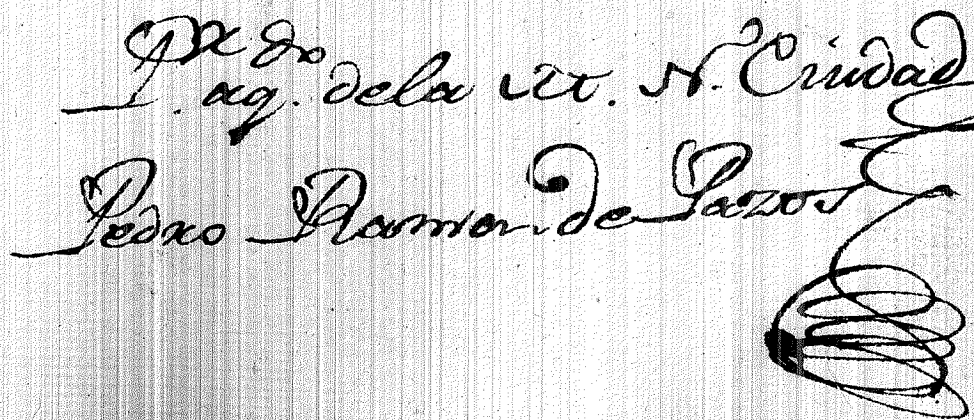 Por acdo. de la M. N. Ciudad
Pedro Ramon de Pazos